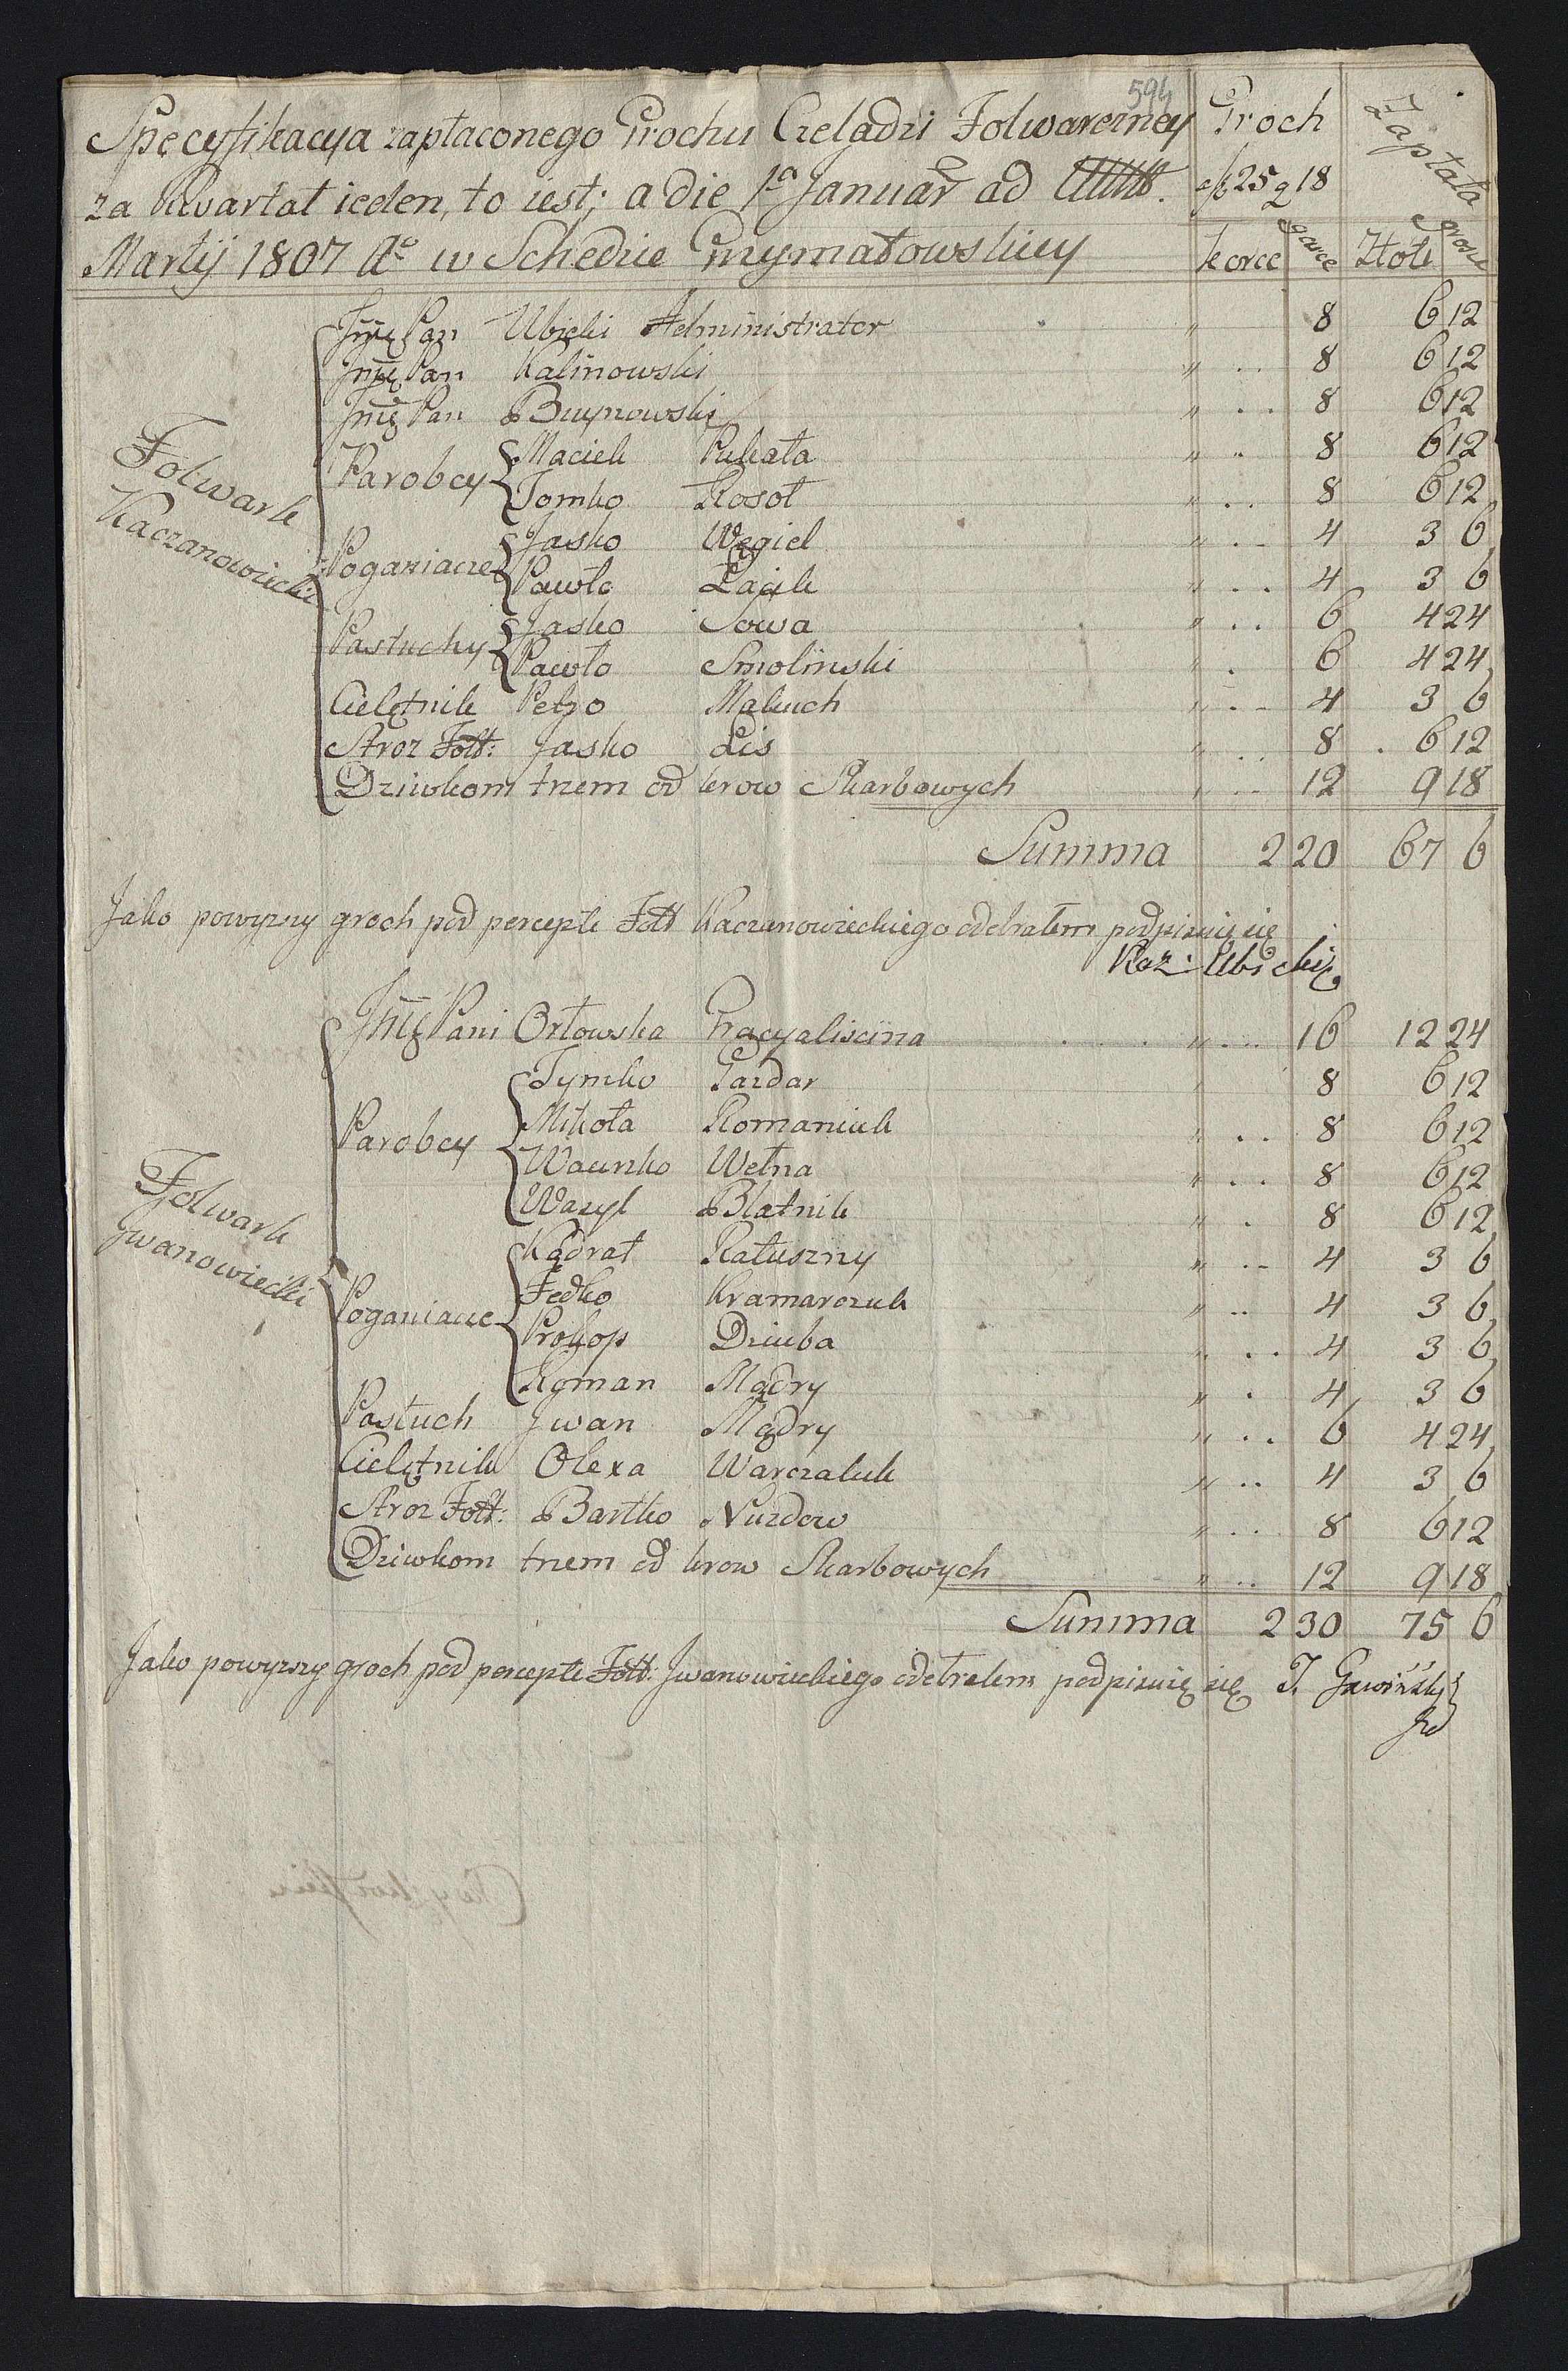 594
Specyfikacya zapłaconego Grochu Czeladzi Folwarczney
za Kwartał ieden, to iest; a die 1a Januar ad Ultt.
Martij 1807 Ao w Schedzie Grzymałowskiey
Groch
25 g 18
Zapłata
korce garce Złote grosze
Folwark
Kaczanowiecki
Jmę Pan Ubicki Administrator " 8 6 12
Jmę Pan Kalinowski " 8 6 12
Jmę Pan Buynowski " 8 6 12
Parobcy Maciek Pukała " 8 6 12
Tomko Rosoł " 8 6 12
Poganiacze Jasko Węgiel " 4 3 6
Pawło Zaiik " 4 3 6
Pastuchy Jasko Sowa " 6 4 24
Pawło Smolinski " 6 4 24
Cielętnik Petro Maluch " 4 3 6
Stroz Folt: Jasko Lis " 8 6 12
Dziwkom trzem od krow Skarbowych " 12 9 18
Summa 2 20 67 6
Jako powyzszy groch pod percepte Folt Kaczanowieckiego odebrałem podpisuię się
Kaz: Ubicki
Folwark
Jwanowiecki
Jmę Pani Orłowska Gracyaliscina " 16 12 24
Parobcy Tymko Gazdar " 8 6 12
Mikoła Romaniuk " 8 6 12
Wawrzko Wełna " 8 6 12
Wasyl Blatnik " 8 6 12
Poganiacze Kądrat Ratuszny " 4 3 6
Fedko Kramarczuk " 4 3 6
Prokop Dziuba " 4 3 6
Roman Mądry " 4 3 6
Pastuch Jwan Mądry " 6 4 24
Cielętnik Olexa Warczaluk " 4 3 6
Stroz Folt: Bartko Nuzdow " 8 6 12
Dziwkom trzem od krow Skarbowych " 12 9 18
Summa 2 30 75 6
Jako powyzszy groch pod percepte Folt: Jwanowieckiego odebrałem podpisuię się J.